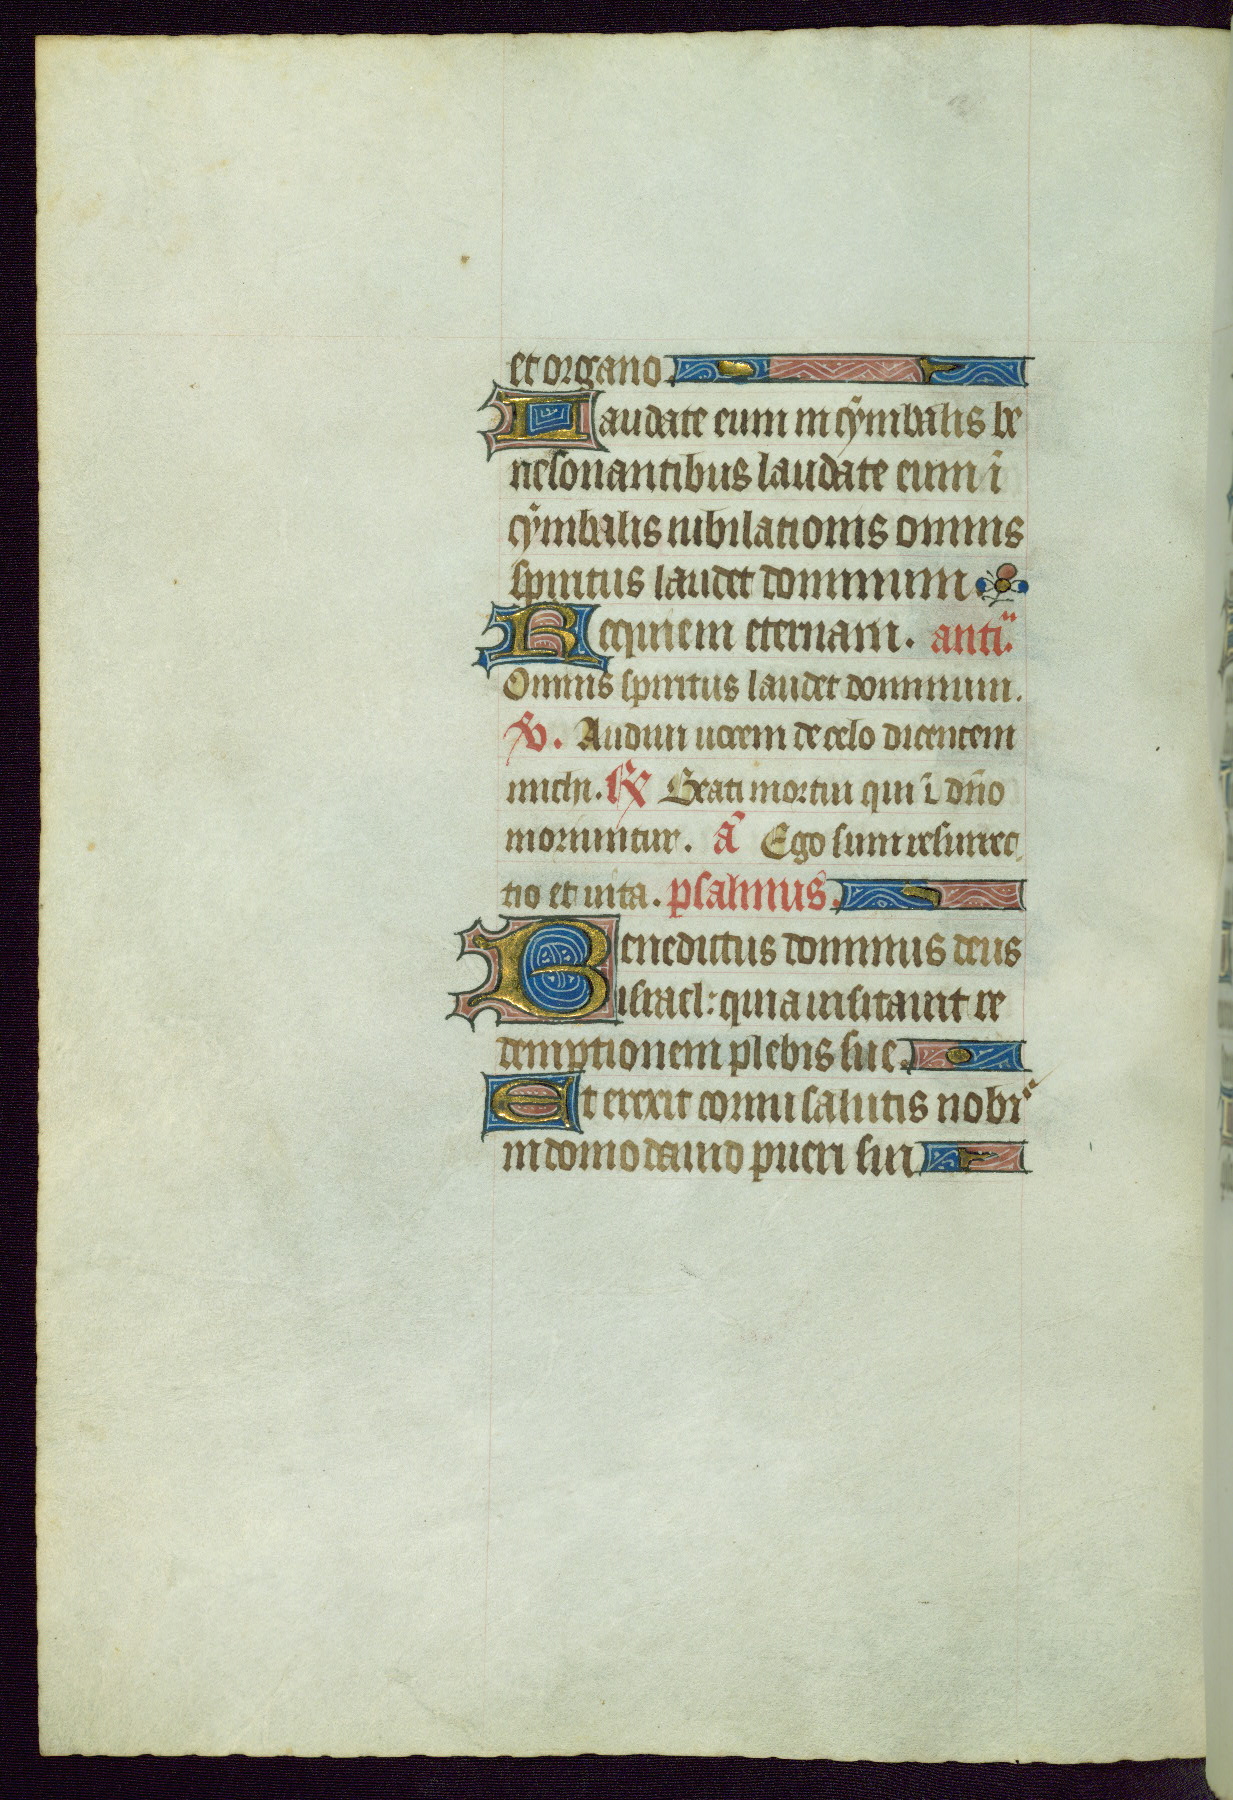 et organo.
Laudate eum in cymbalis be
nesonantibus laudate eum ī
cymbalis iubilationis omnis
spiritus laudet dominum
Requiem eternam. anti.
Omnis spiritus laudet dominum.
V. Audiui uocem de celo dicentem
michi. R Beati mortui qui ī dn̄o
moriuntur. a Ego sum resurrec
tio et uita. psalmus.
Benedictus dominus deus
israel: quia uisitauit re
demptionem plebis sue.
Et erexit cornu salutis nobis
in domo dauid pueri sui